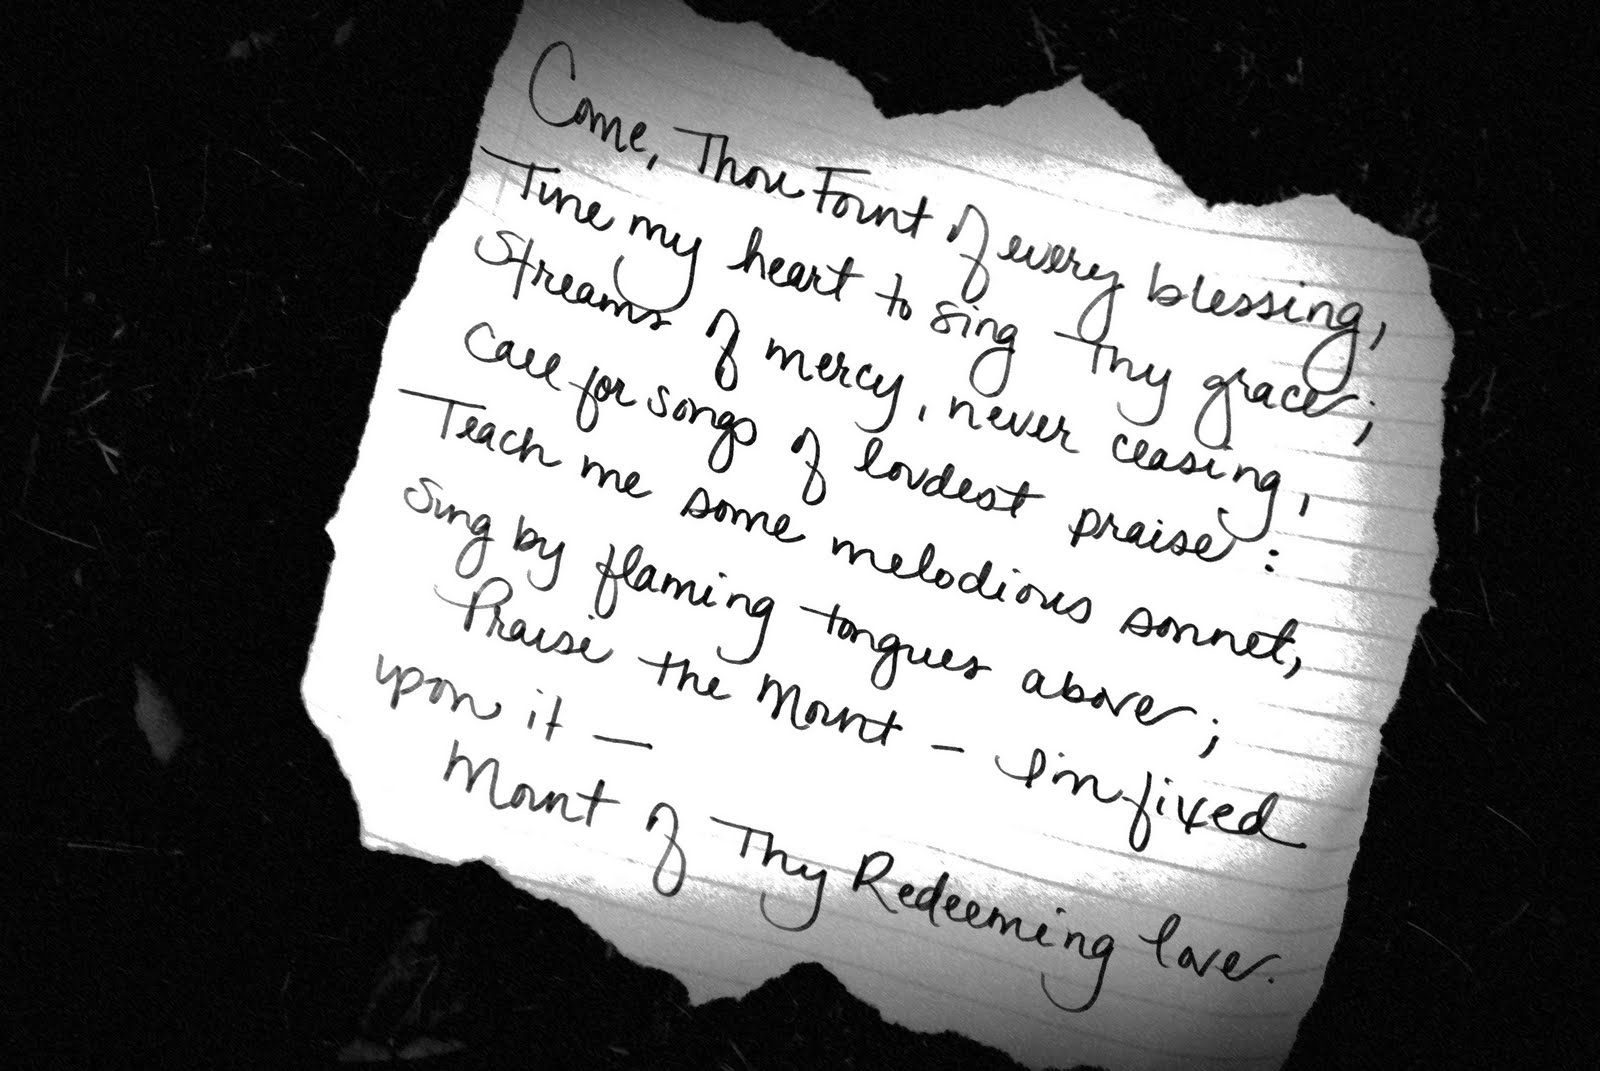 Come, Thou Fount of every blessing,
Tune my heart to sing Thy grace;
Streams of mercy, never ceasing,
Call for songs of loudest praise:
Teach me some melodious sonnet,
Sung by flaming tongues above;
Praise the Mount - I'm fixed
upon it —
Mount of Thy Redeeming love.